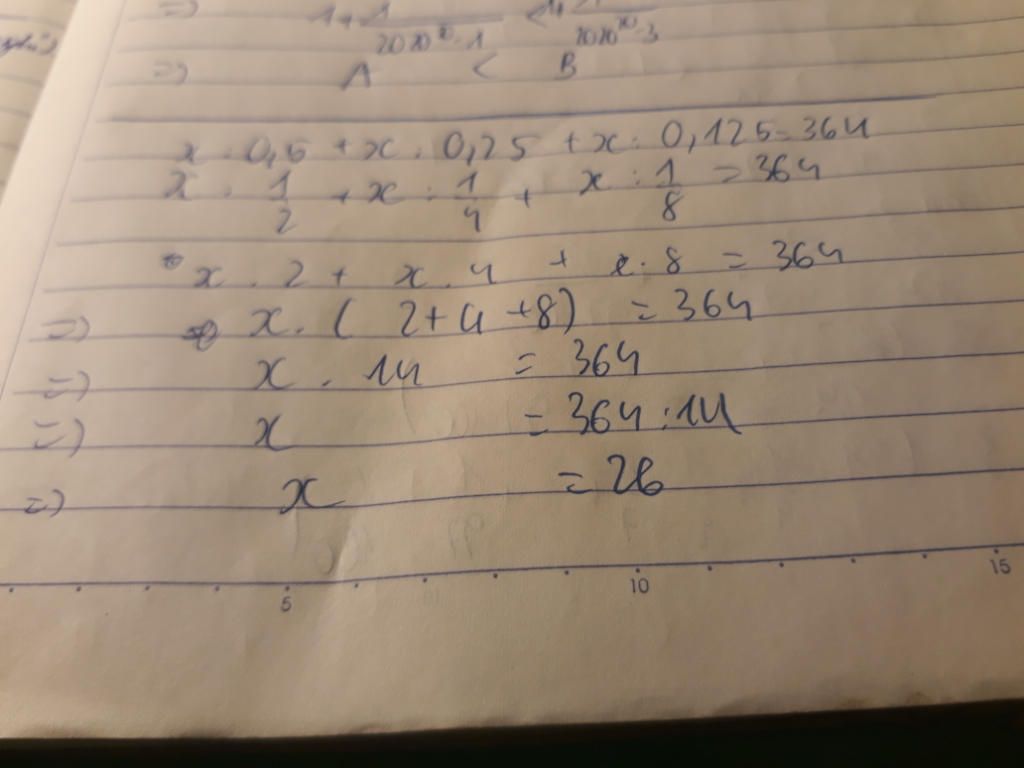 => 1+1/2020^10-1 < 1+
2020^10-3
=> A < B
x : 0,5 + x : 0,25 + x : 0,125 = 364
x : 1/2 + x : 1/4 + x : 1/8 = 364
x . 2 + x . 4 + x . 8 = 364
=> x . ( 2+4+8) = 364
=> x . 14 = 364
=> x = 364 : 14
=> x = 26
5 10 15